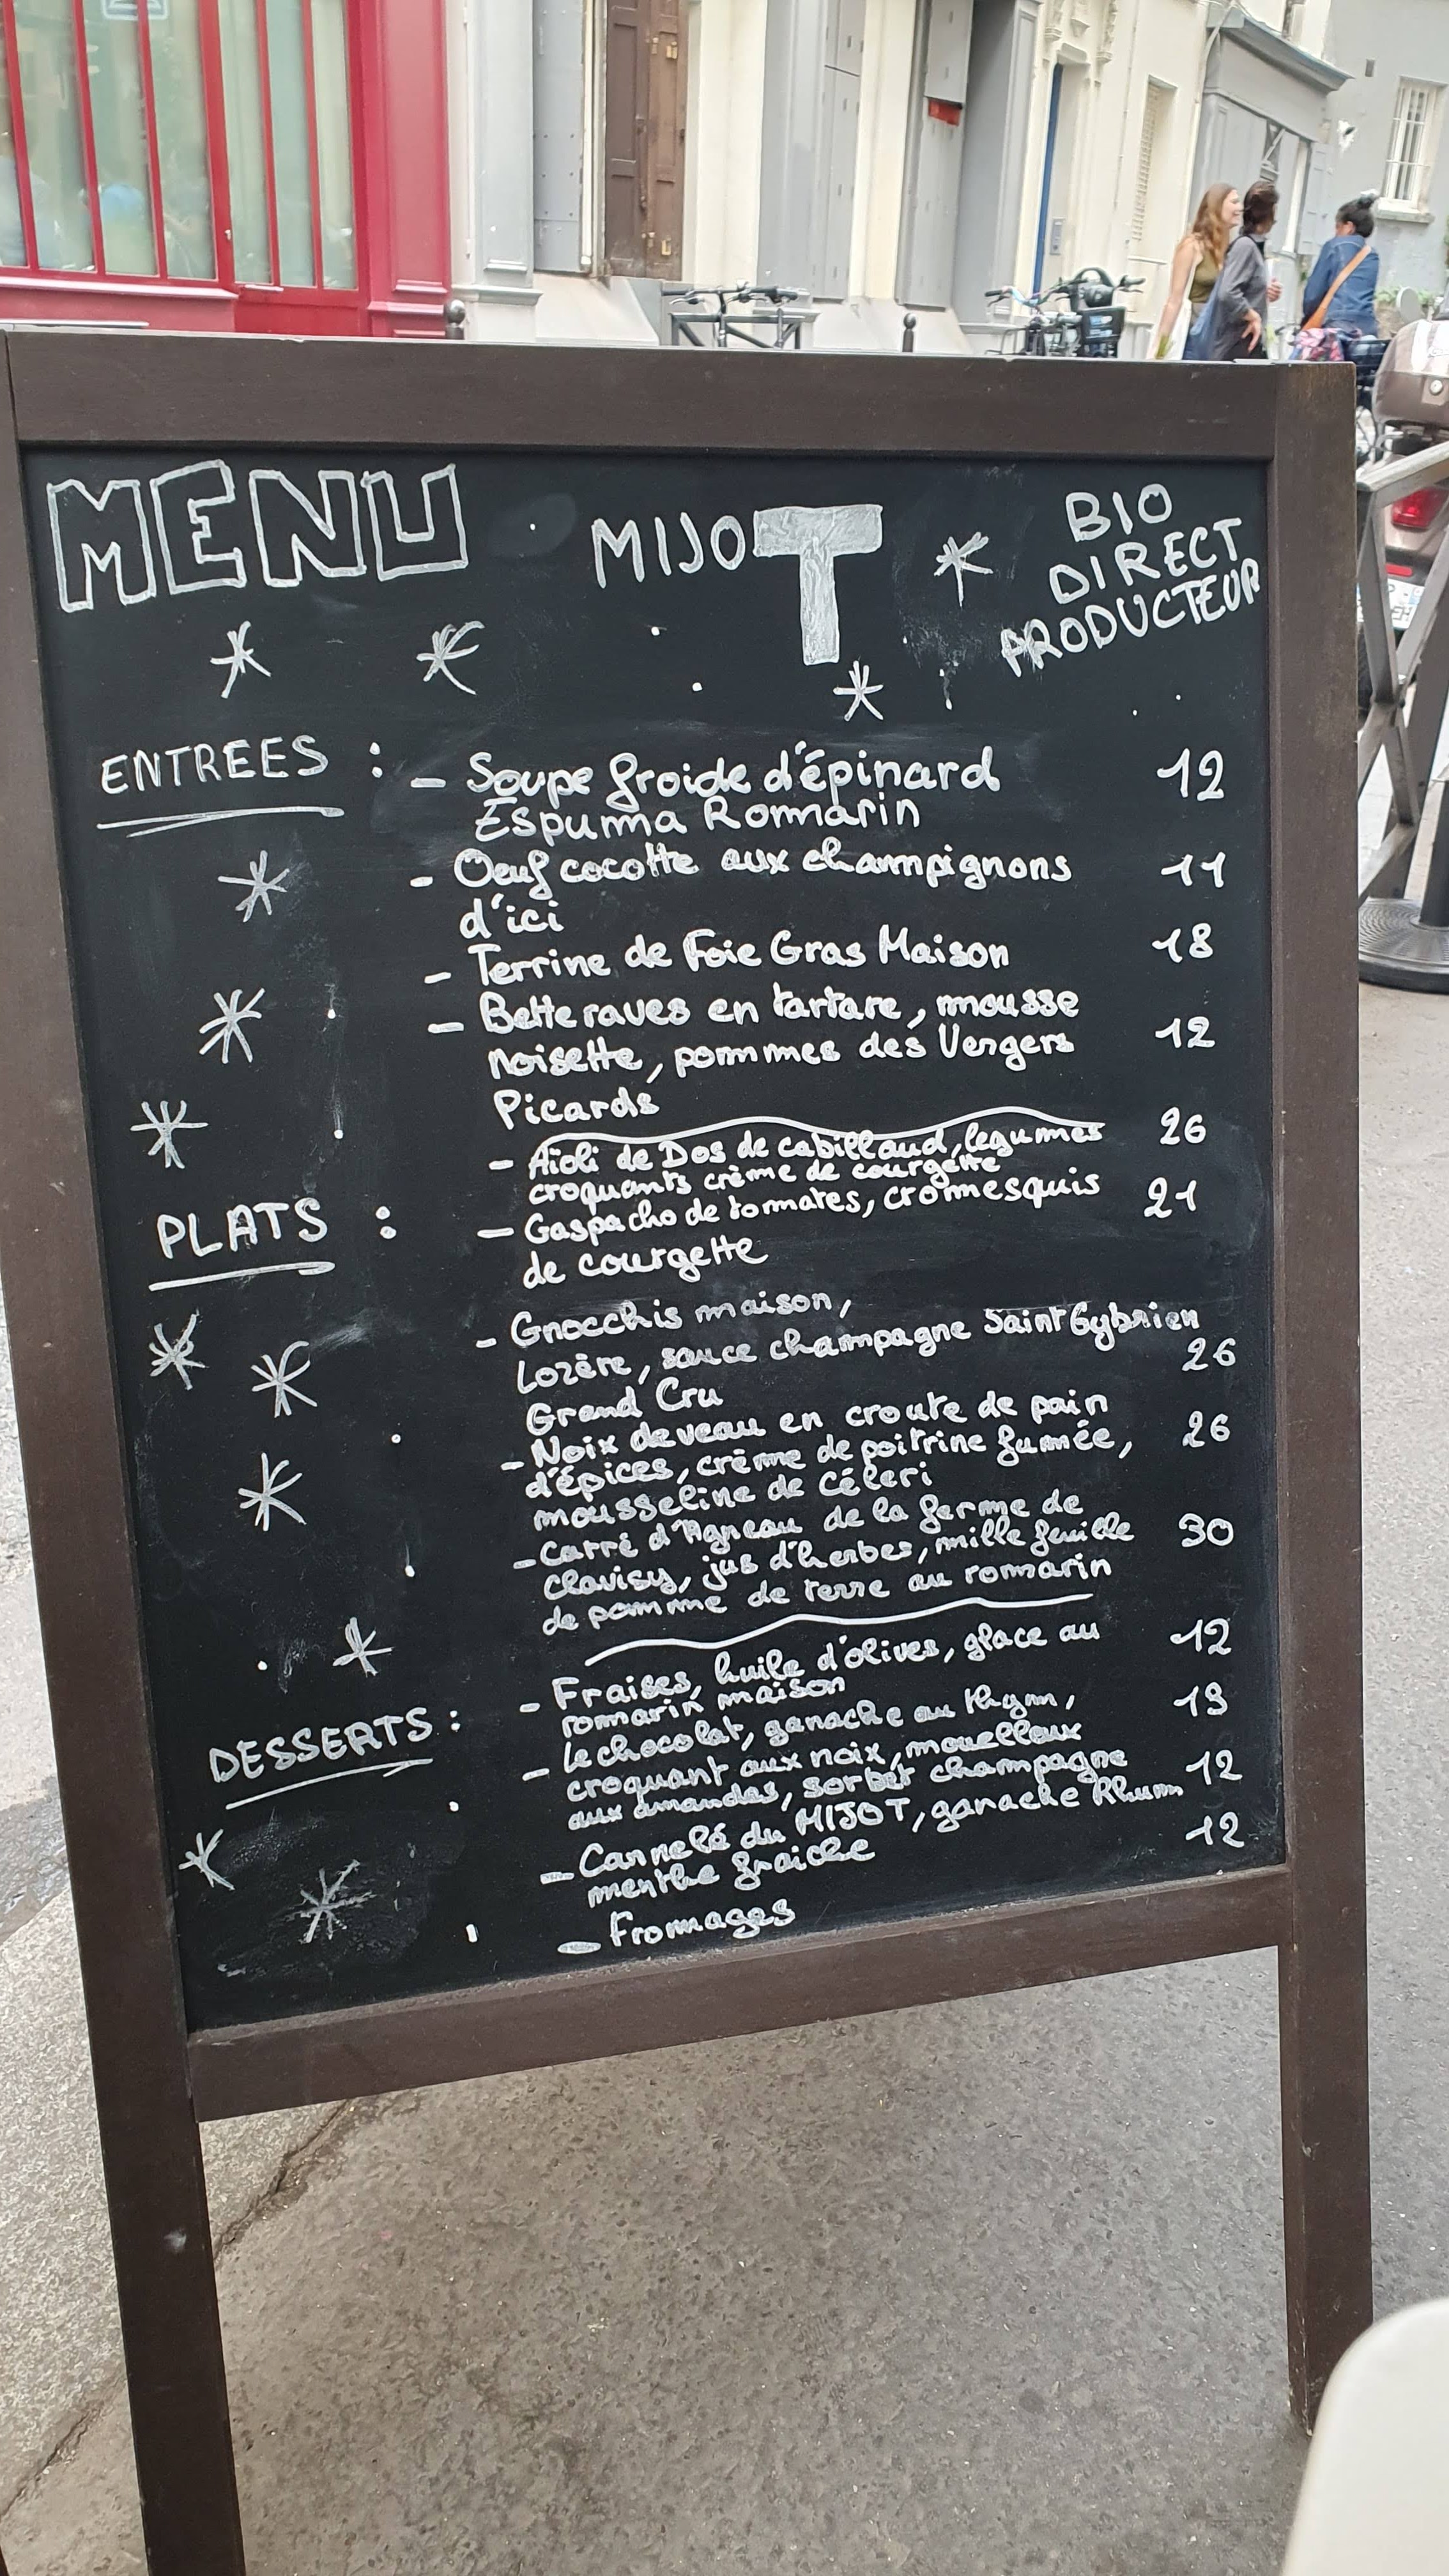 MENU MIJOT BIO
DIRECT
PRODUCTEUR
ENTREES : - Soupe froide d'épinard 12
Espuma Romarin
- Oeuf cocotte aux champignons 11
d'ici
- Terrine de Foie Gras Maison 18
- Betteraves en tartare, mousse
noisette, pommes des Vergers 12
Picards
- Aïoli de Dos de cabillaud, legumes 26
croquants crème de courgette
PLATS : - Gaspacho de tomates, cromesquis 21
de courgette
- Gnocchis maison,
Lozère, sauce champagne Saint Gybrien
Grand Cru 26
- Noix de veau en croute de pain
d'épices, crème de poitrine fumée, 26
mousseline de Céleri
- Carré d'Agneau de la ferme de
clavisy, jus d'herbes, mille feuille 30
de pomme de terre au romarin
- Fraises, huile d'olives, glace au 12
romarin maison
DESSERTS : - Le chocolat, ganache au thym, 13
croquant aux noix, mouelloux
aux amandes, sorbet champagne
- Cannelé du MIJOT, ganache Rhum 12
menthe fraiche
- Fromages 12